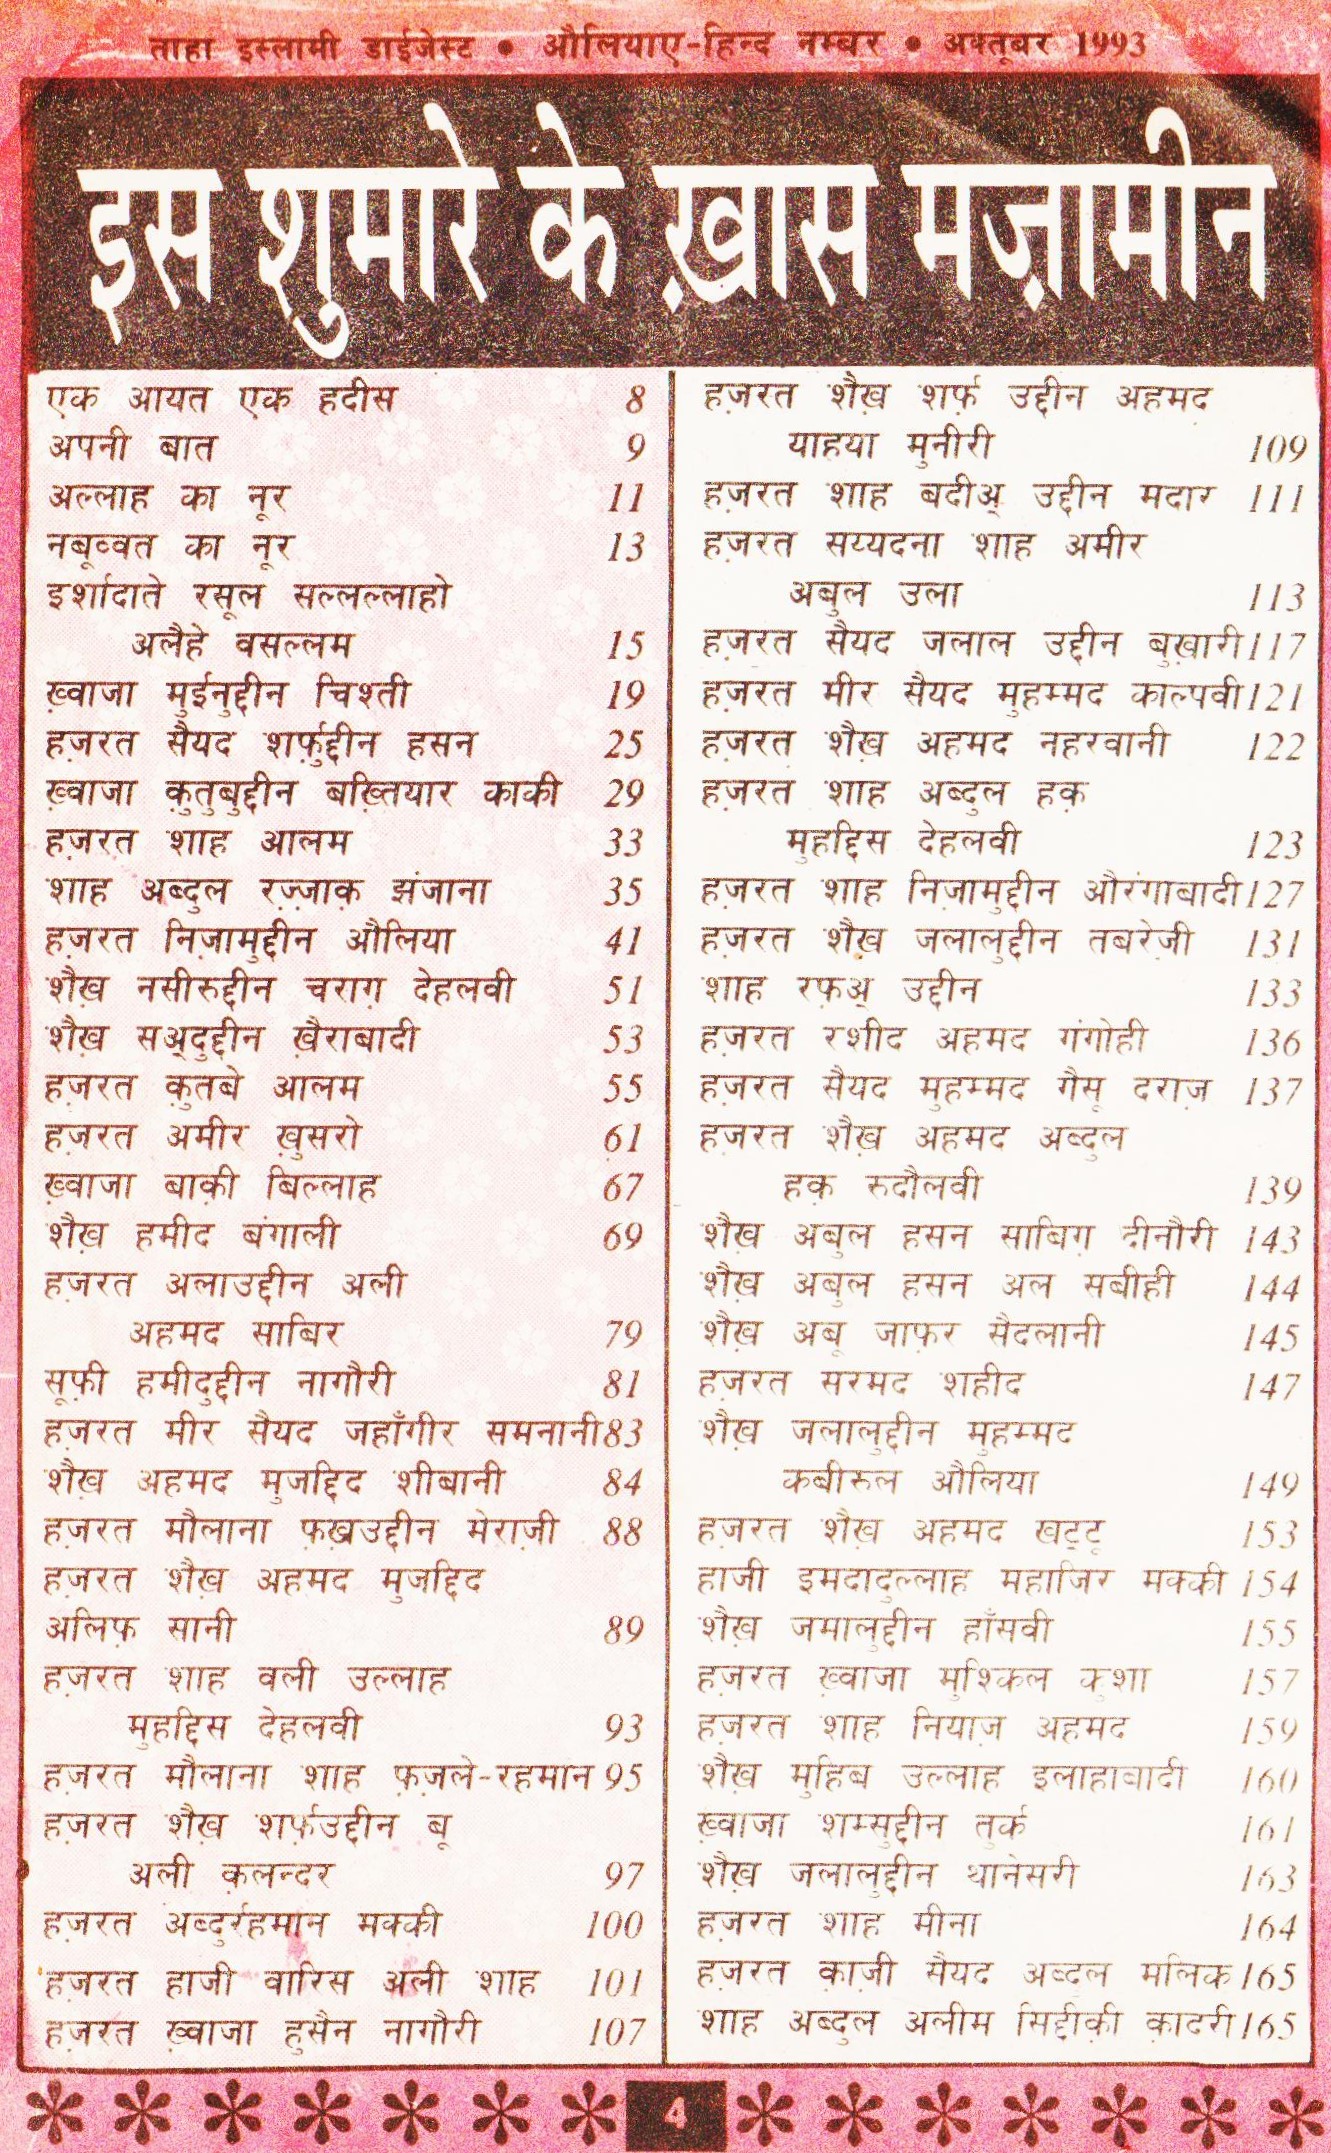 ताहा इस्लामी डाईजेस्ट • औलियाए-हिन्द नम्बर • अक्तूबर 1993
इस शुमारे के ख़ास मज़ामीन
एक आयत एक हदीस 8
अपनी बात 9
अल्लाह का नूर 11
नबूव्वत का नूर 13
इर्शादाते रसूल सल्लल्लाहो
अलैहे वसल्लम 15
ख़्वाजा मुईनुद्दीन चिश्ती 19
हज़रत सैयद शर्फ़ुद्दीन हसन 25
ख़्वाजा क़ुतुबुद्दीन बख़्तियार काकी 29
हज़रत शाह आलम 33
शाह अब्दुल रज़्ज़ाक़ झंजाना 35
हज़रत निज़ामुद्दीन औलिया 41
शैख़ नसीरुद्दीन चराग़ देहलवी 51
शैख़ सअ्दुद्दीन ख़ैराबादी 53
हज़रत क़ुतबे आलम 55
हज़रत अमीर ख़ुसरो 61
ख़्वाजा बाक़ी बिल्लाह 67
शैख़ हमीद बंगाली 69
हज़रत अलाउद्दीन अली
अहमद साबिर 79
सूफ़ी हमीदुद्दीन नागौरी 81
हज़रत मीर सैयद जहाँगीर समनानी 83
शैख़ अहमद मुजद्दिद शीबानी 84
हज़रत मौलाना फ़ख़उद्दीन मेराज़ी 88
हज़रत शैख़ अहमद मुजद्दिद
अलिफ़ सानी 89
हज़रत शाह वली उल्लाह
मुहद्दिस देहलवी 93
हज़रत मौलाना शाह फ़ज़ले-रहमान 95
हज़रत शैख़ शर्फ़उद्दीन बू
अली क़लन्दर 97
हज़रत अब्दुर्रहमान मक्की 100
हज़रत हाजी वारिस अली शाह 101
हज़रत ख़्वाजा हुसैन नागौरी 107
हज़रत शैख़ शर्फ़ उद्दीन अहमद
याहया मुनीरी 109
हज़रत शाह बदीअ् उद्दीन मदार 111
हज़रत सय्यदना शाह अमीर
अबुल उला 113
हज़रत सैयद जलाल उद्दीन बुख़ारी 117
हज़रत मीर सैयद मुहम्मद काल्पवी 121
हज़रत शैख़ अहमद नहरवानी 122
हज़रत शाह अब्दुल हक़
मुहद्दिस देहलवी 123
हज़रत शाह निज़ामुद्दीन औरंगाबादी 127
हज़रत शैख़ जलालुद्दीन तबरेज़ी 131
शाह रफ़अ् उद्दीन 133
हज़रत रशीद अहमद गंगोही 136
हज़रत सैयद मुहम्मद गैसू दराज़ 137
हज़रत शैख़ अहमद अब्दुल
हक़ रुदौलवी 139
शैख़ अबुल हसन साबिग़ दीनौरी 143
शैख़ अबुल हसन अल सबीही 144
शैख़ अबू जाफ़र सैदलानी 145
हज़रत सरमद शहीद 147
शैख़ जलालुद्दीन मुहम्मद
कबीरुल औलिया 149
हज़रत शैख़ अहमद खट्टू 153
हाजी इमदादुल्लाह महाजिर मक्की 154
शैख़ जमालुद्दीन हाँसवी 155
हज़रत ख़्वाजा मुश्किल कुशा 157
हज़रत शाह नियाज़ अहमद 159
शैख़ मुहिब उल्लाह इलाहाबादी 160
ख़्वाजा शम्सुद्दीन तुर्क 161
शैख़ जलालुद्दीन थानेसरी 163
हज़रत शाह मीना 164
हज़रत क़ाज़ी सैयद अब्दुल मलिक 165
शाह अब्दुल अलीम सिद्दीक़ी क़ादरी 165
4